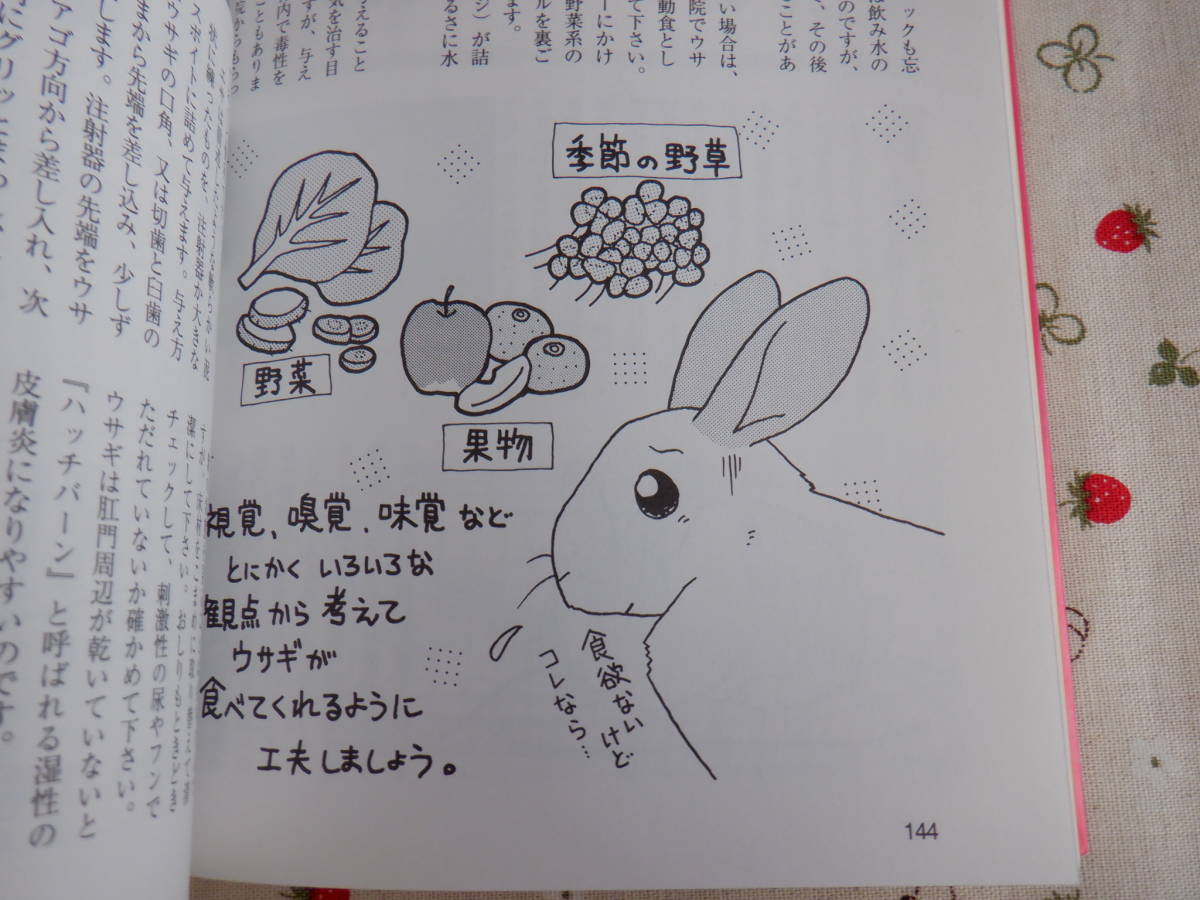 ックも忘
は飲み水の
のですが、
、その後
ことがあ
い場合は、
院でウサ
動食とし
て下さい。
ーにかけ
野菜系の
ルを裏ご
ます。
ジ）が詰
るさに水
与えること
気を治す目
すが、与え
内で毒性を
こともありま
季節の野草
野菜
果物
視覚、嗅覚、味覚など
とにかく いろいろな
観点から 考えて
ウサギが
食べてくれるように
工夫しましょう。
食欲ないけど
コレなら…
潔にして下さい。おしりもときどき
チェックして、刺激性の尿やフンで
ただれていないか確かめて下さい。
ウサギは肛門周辺が乾いていないと
『ハッチバーン』と呼ばれる湿性の
皮膚炎になりやすいのです。
スポイトに詰めて与えます。与え方
ウサギの口角、又は切歯と臼歯の
まから先端を差し込み、少しず
します。注射器の先端をウサ
アゴ方向から差し入れ、次
144